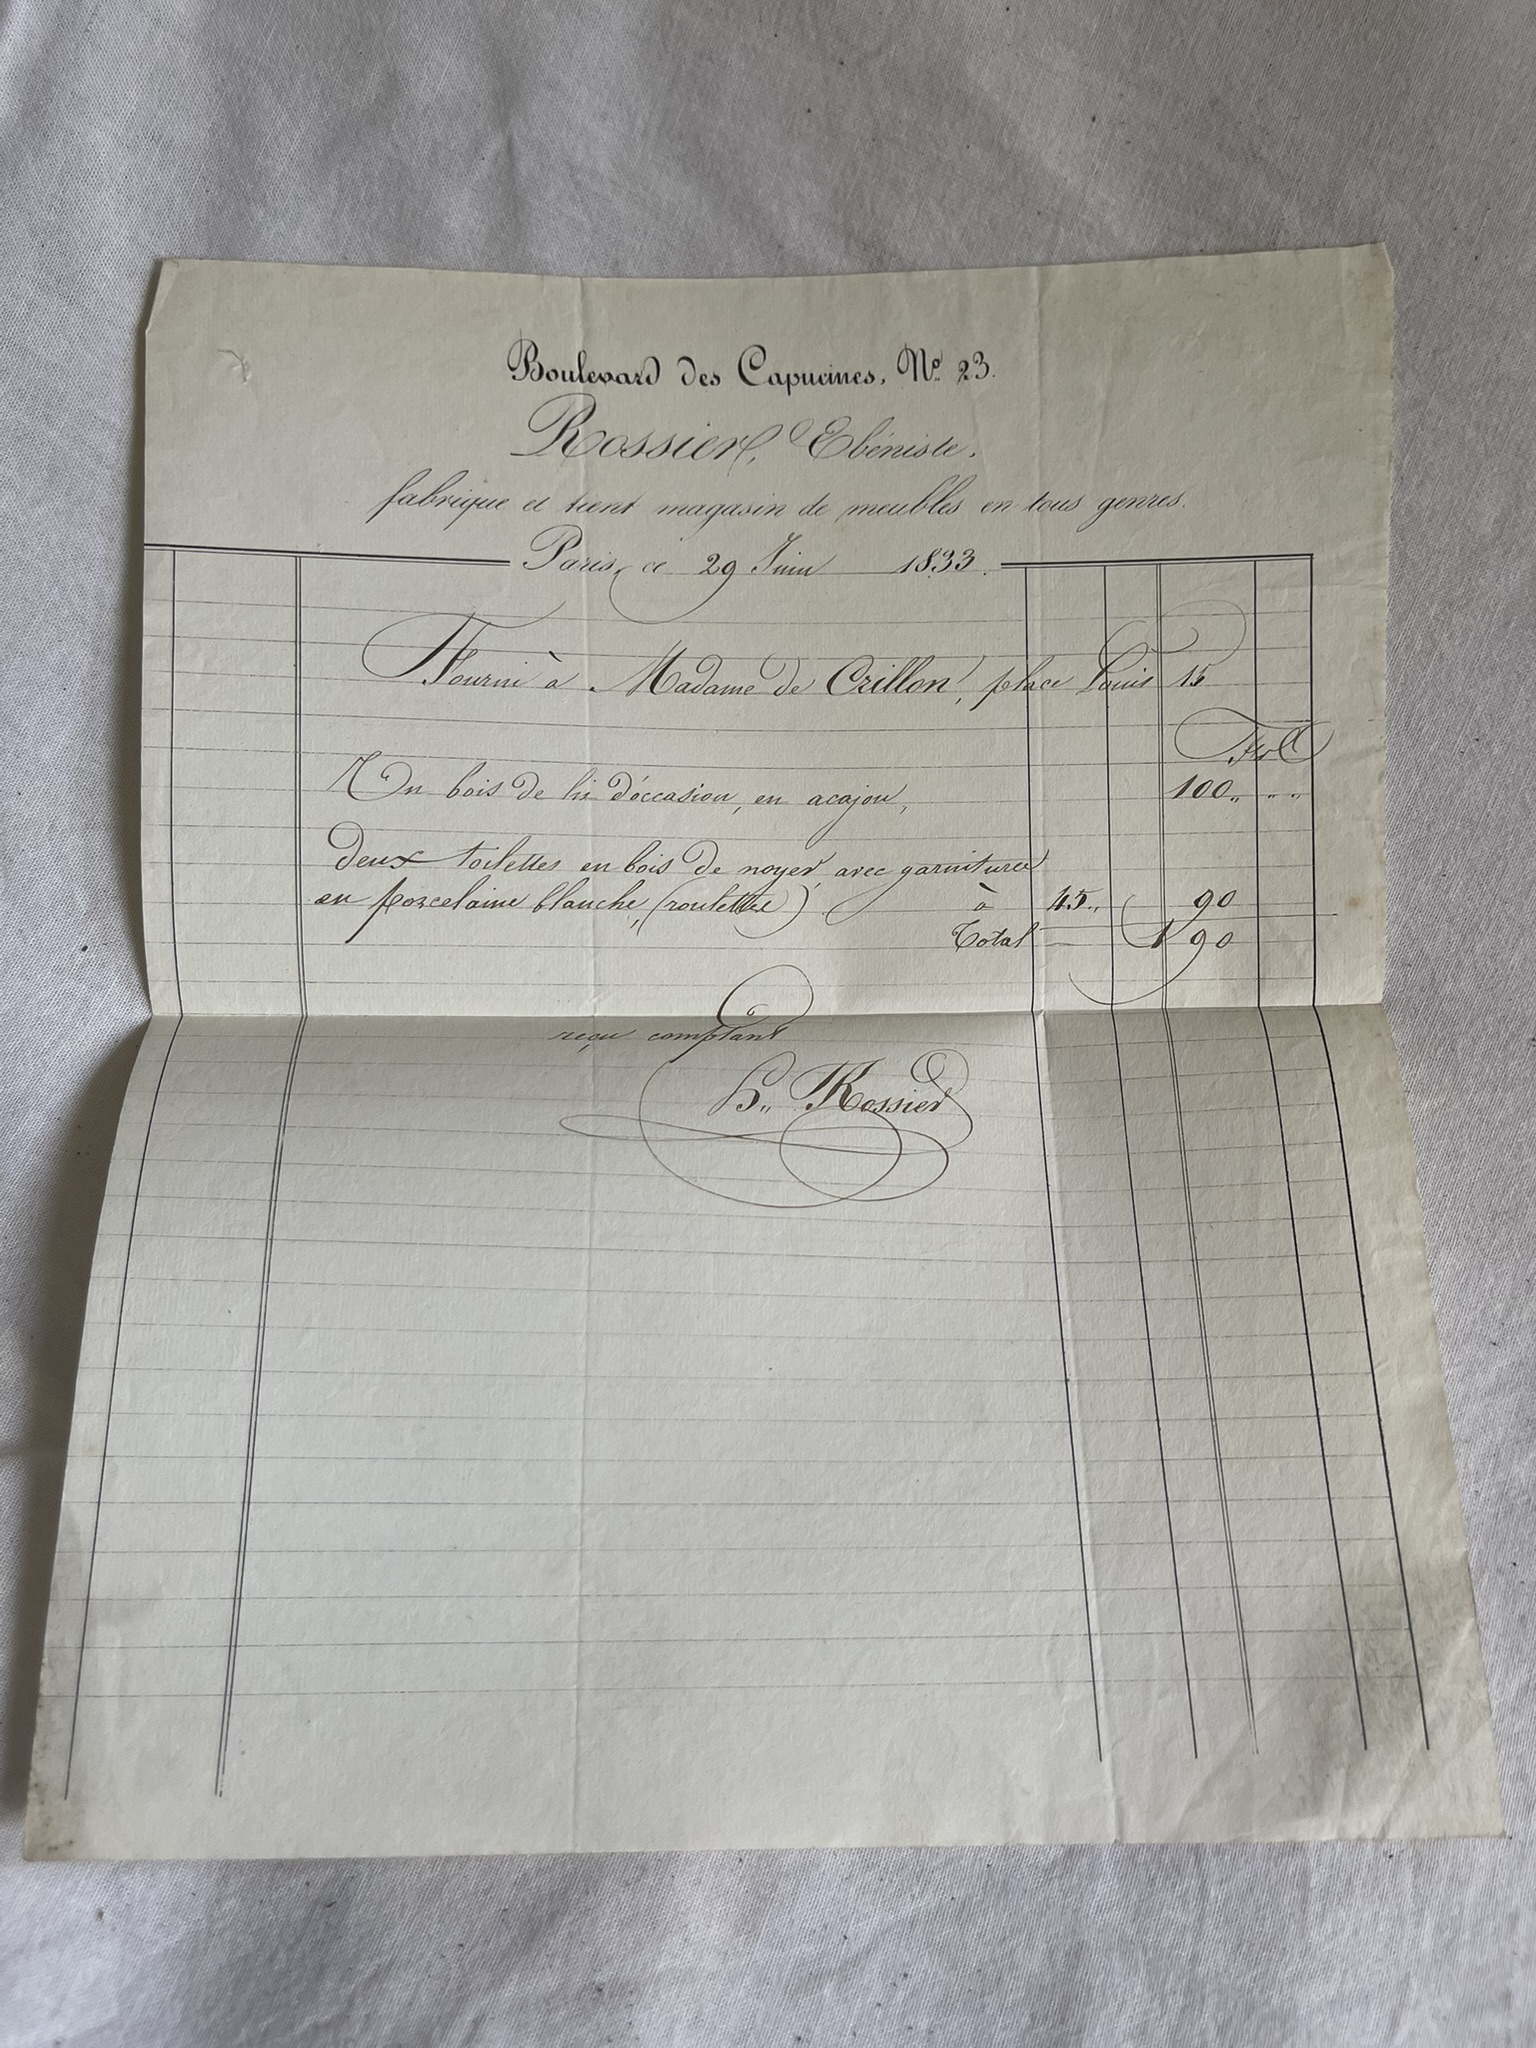 Boulevard des Capucines, No. 23.
Rossier, Ebéniste.
fabrique et tient magasin de meubles en tous genres.
Paris, ce 29 Juin 1833.
Fourni à Madame de Crillon, place Louis 15
frs C
Un bois de lit d'occasion, en acajou, 100 „ „ „
deux toilettes en bois de noyer, avec garnitures
en porcelaine blanche, (roulettes) à 45 „ 90
Total 190
reçu comptant
H. Rossier